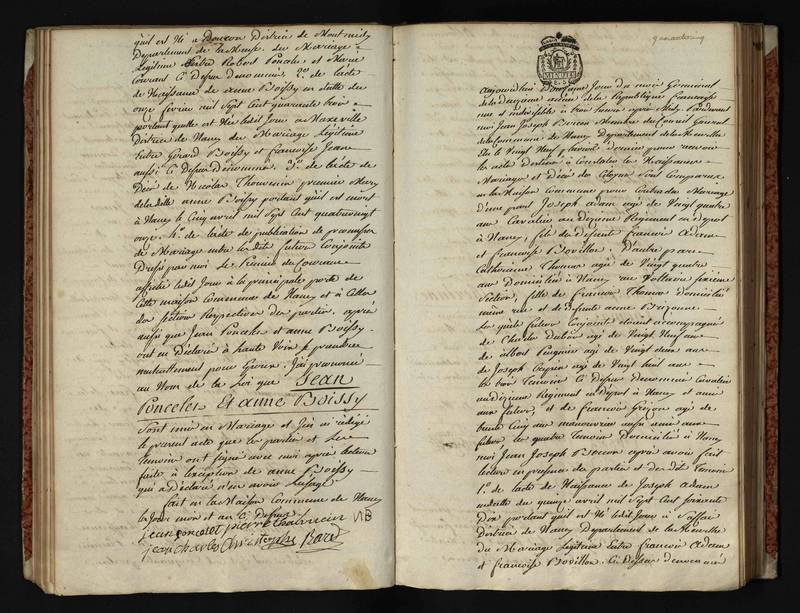 qu'il est Né a Doncon District de Montmidy
Departement de la Meuse. du Mariage
Légitime Entre Robert Poncelet et Marie
Courant Ci Dessus Denommés. 2°. de l'acte
de Naissance de anne Boissy en datte du
onze fevrier mil Sept Cent quarante trois
portant quelle est Née ledit Jour a Maxeville
District de Nancy du Mariage Légitime
Entre Gérard Boissy et françoise Jean
aussi Ci Dessus Dénommés. 3°. de l'acte de
Décès de Nicolas Thouvenin premier Mary
de la ditte anne Boissy portant qu'il est mort
à Nancy le Cinq avril mil Sept Cent quatrevingt
onze. 4°. de l'acte de publication de promesse
de Mariage entre les dits futurs Conjoints
Dressé par moi le du Courant
affiché ledit Jour à la principale porte de
Cette maison Commune de Nancy et à Celle
des Section Respective des parties. après
aussi que Jean Poncelet et anne Boissy
ont eu Déclaré à haute Voix se prendre
mutuellement pour Epoux. J'ai prononcé
au Nom de la Loi que Jean
Poncelet Et anne Boissy
Sont unis en Mariage et J'ai rédigé
le présent acte que les parties et les
Temoins ont Signé avec moi après lecture
faite à l'exception de anne Boissy
qui a Déclaré n'en avoir l'usage
fait en la Maison Commune de Nancy
les Jour mois et an Ci Dessus
jean poncelet pierre thouvenin
jean Charles Christophe
aujourd'hui Jour du mois Germinal
de la Deuxieme année de la Republique française
une et indivisible à trois heures après Midi. Pardevant
moi Jean Joseph Membre du Conseil General
de la Commune de Nancy Departement de la Meurthe
Elu le Vingt Neuf dernier pour recevoir
les actes Destinés à Constater les Naissances
Mariages et Décès des Citoyens Sont Comparus
en la Maison Commune pour Contracter Mariage
d'une part Joseph adam agé de Vingt quatre
ans Cavalier au Dixieme Regiment en Depot
à Nancy, fils de Defunts francois adam
et francoise Bovillon. D'autre part
Catherine Thomas agée de Vingt quatre
ans Domiciliée à Nancy rue Voltaire
Section, fille de francois Thomas Domicilié
même rue et de Defunte anne
Les quels futurs Conjoints etoient accompagnés
de Charles Dubois agé de Vingt Neuf ans
de albert agé de Vingt deux ans
de Joseph agé de Vingt huit ans
les trois Temoins Ci Dessus Denommés Cavaliers
au Dixieme Regiment en Depot à Nancy et amis
aux futurs, et de francois agé de
trente Cinq ans manouvrier aussi ami aux
futurs les quatre temoins Domiciliés à Nancy
moi Jean Joseph après avoir fait
lecture en presence des parties et des dits Temoins
1°. de l'acte de Naissance de Joseph adam
en datte du quinze avril mil Sept Cent soixante
Dix portant qu'il est Né ledit Jour à
District de Nancy Departement de la Meurthe
du Mariage Légitime Entre francois adam
et francoise Bovillon. Ci Dessus denommés